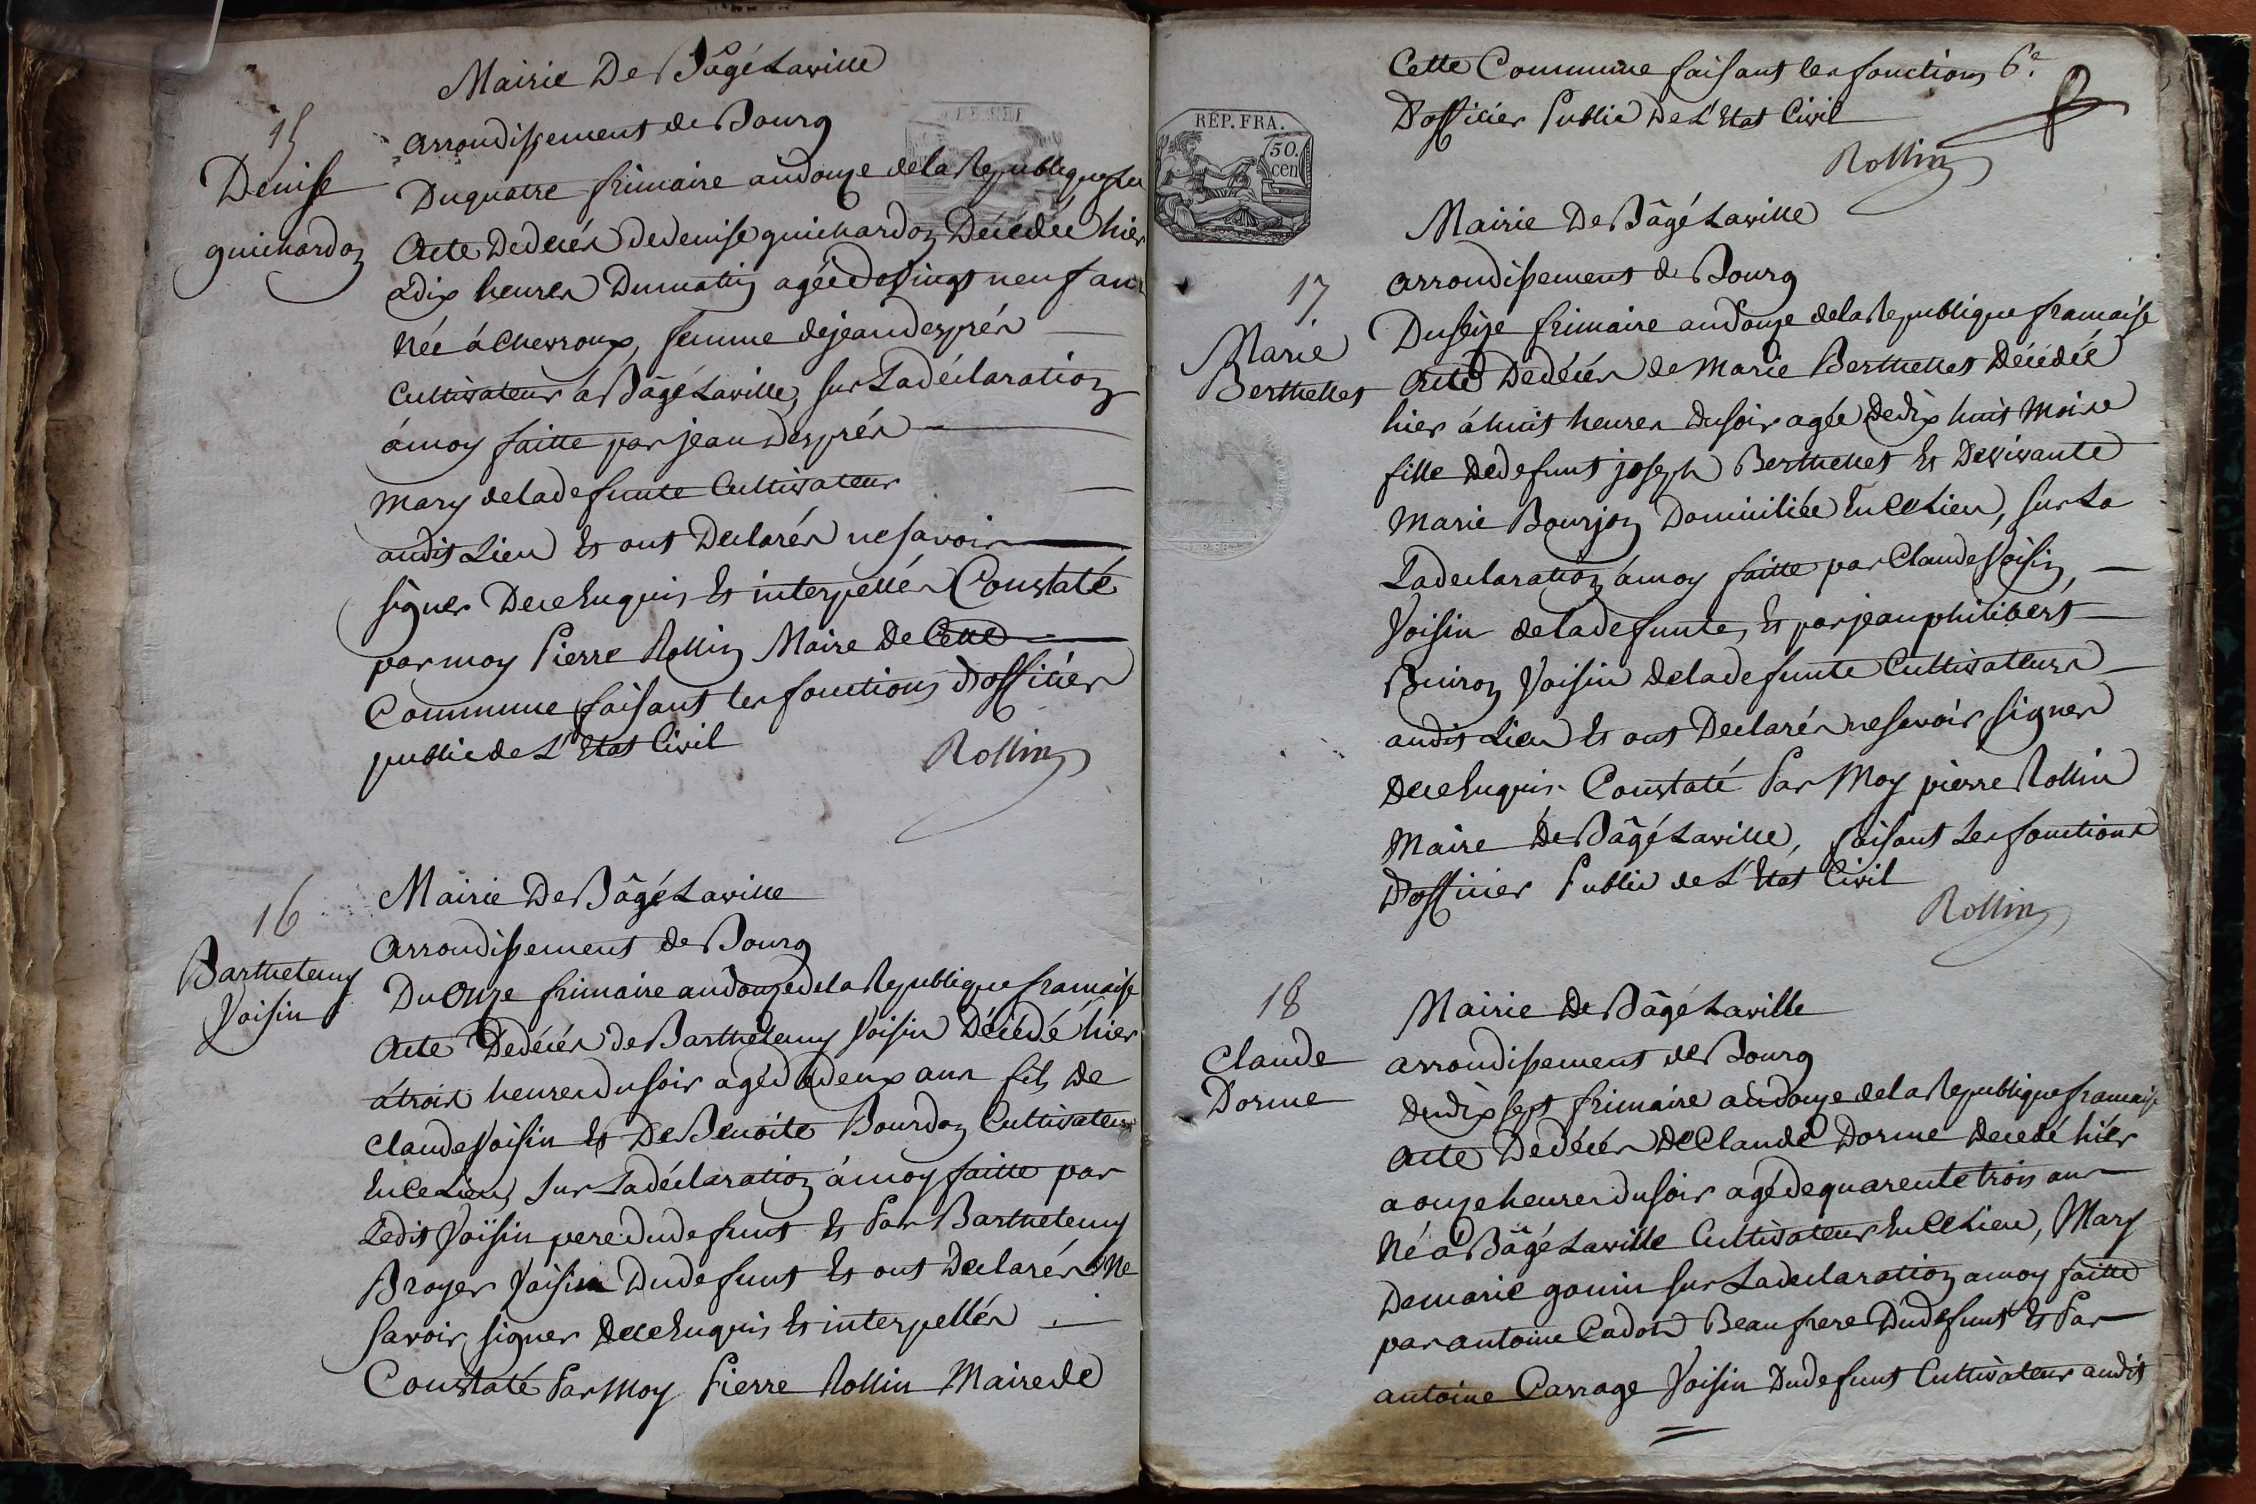 Mairie De Bâgé Laville
15
arrondissement de Bourg
Denise
guichardon
Du quatre frimaire an douze de la Republique
Acte De décés de denise guichardon Décédée hier
a dix heures Du matin agée de Vingt neuf ans
Née á Chevroux, femme de jean després
Cultivateur á Bâgé Laville, sur La déclaration
á moy faitte par jean després
Mary de la defunte Cultivateur
audit Lieu Et ont Declarés ne savoir
signer De ce Enquis Et interpellés Constaté
par moy Pierre Rollin Maire De Cette
Commune faisant les fonctions D'officier
public de L'Etat Civil
Rollin
16
Barthelemy
Voisin
Mairie De Bâgé Laville
arrondissement de Bourg
Du Onze frimaire an douze de la Republique francaise
Acte De décés de Barthelemy Voisin Décédé hier
á trois heures du soir agé de deux ans fils de
Claude Voisin Et De Benoite Bourdon Cultivateurs
En ce Lieu, Sur La déclaration á moy faitte par
Ledit Voisin pere du defunt Et Par Barthelemy
Broyer Voisin Du defunt Et ont Declarés Ne
Savoir signer De ce Enquis Et interpellés
Constaté Par Moy Pierre Rollin Maire de
Cette Commune faisant les fonctions 6e.
D'officier Public De L'Etat Civil
Rollin
RÉP. FRA.
50.
cen
Mairie De Bâgé Laville
arrondissement de Bourg
17.
Marie
Berthellet
Du seize frimaire an douze de la Republique francaise
Acte De décés de Marie Berthellet Décédée
hier á huit heures du soir agée De dix huit Mois
fille De defunt joseph Berthellet Et De vivante
Marie Bourjon Domiciliée En ce Lieu, sur La
La declaration á moy faitte par Claude Voisin,
Voisin de la defunte, Et par jean philibert
Buiron Voisin de la defunte Cultivateurs
audit Lieu Et ont Declarés ne savoir signer
De ce Enquis Constaté Par Moy pierre Rollin
Maire De Bâgé Laville, faisant Les fonctions
D'officier Public de L'Etat Civil
Rollin
18
Claude
Dorme
Mairie De Bâgé Laville
arrondissement de Bourg
du dix sept frimaire an douze de la Republique francaise
Acte De décés De Claude Dorme decedé hier
a onze heures du soir agé de quarente trois ans
Né á Bâgé Laville Cultivateur En ce Lieu, Mary
De marie gonin sur La declaration a moy faitte
par antoine Cadot Beaufrere Du defunt Et Par
antoine Carrage Voisin Du defunt Cultivateur audit